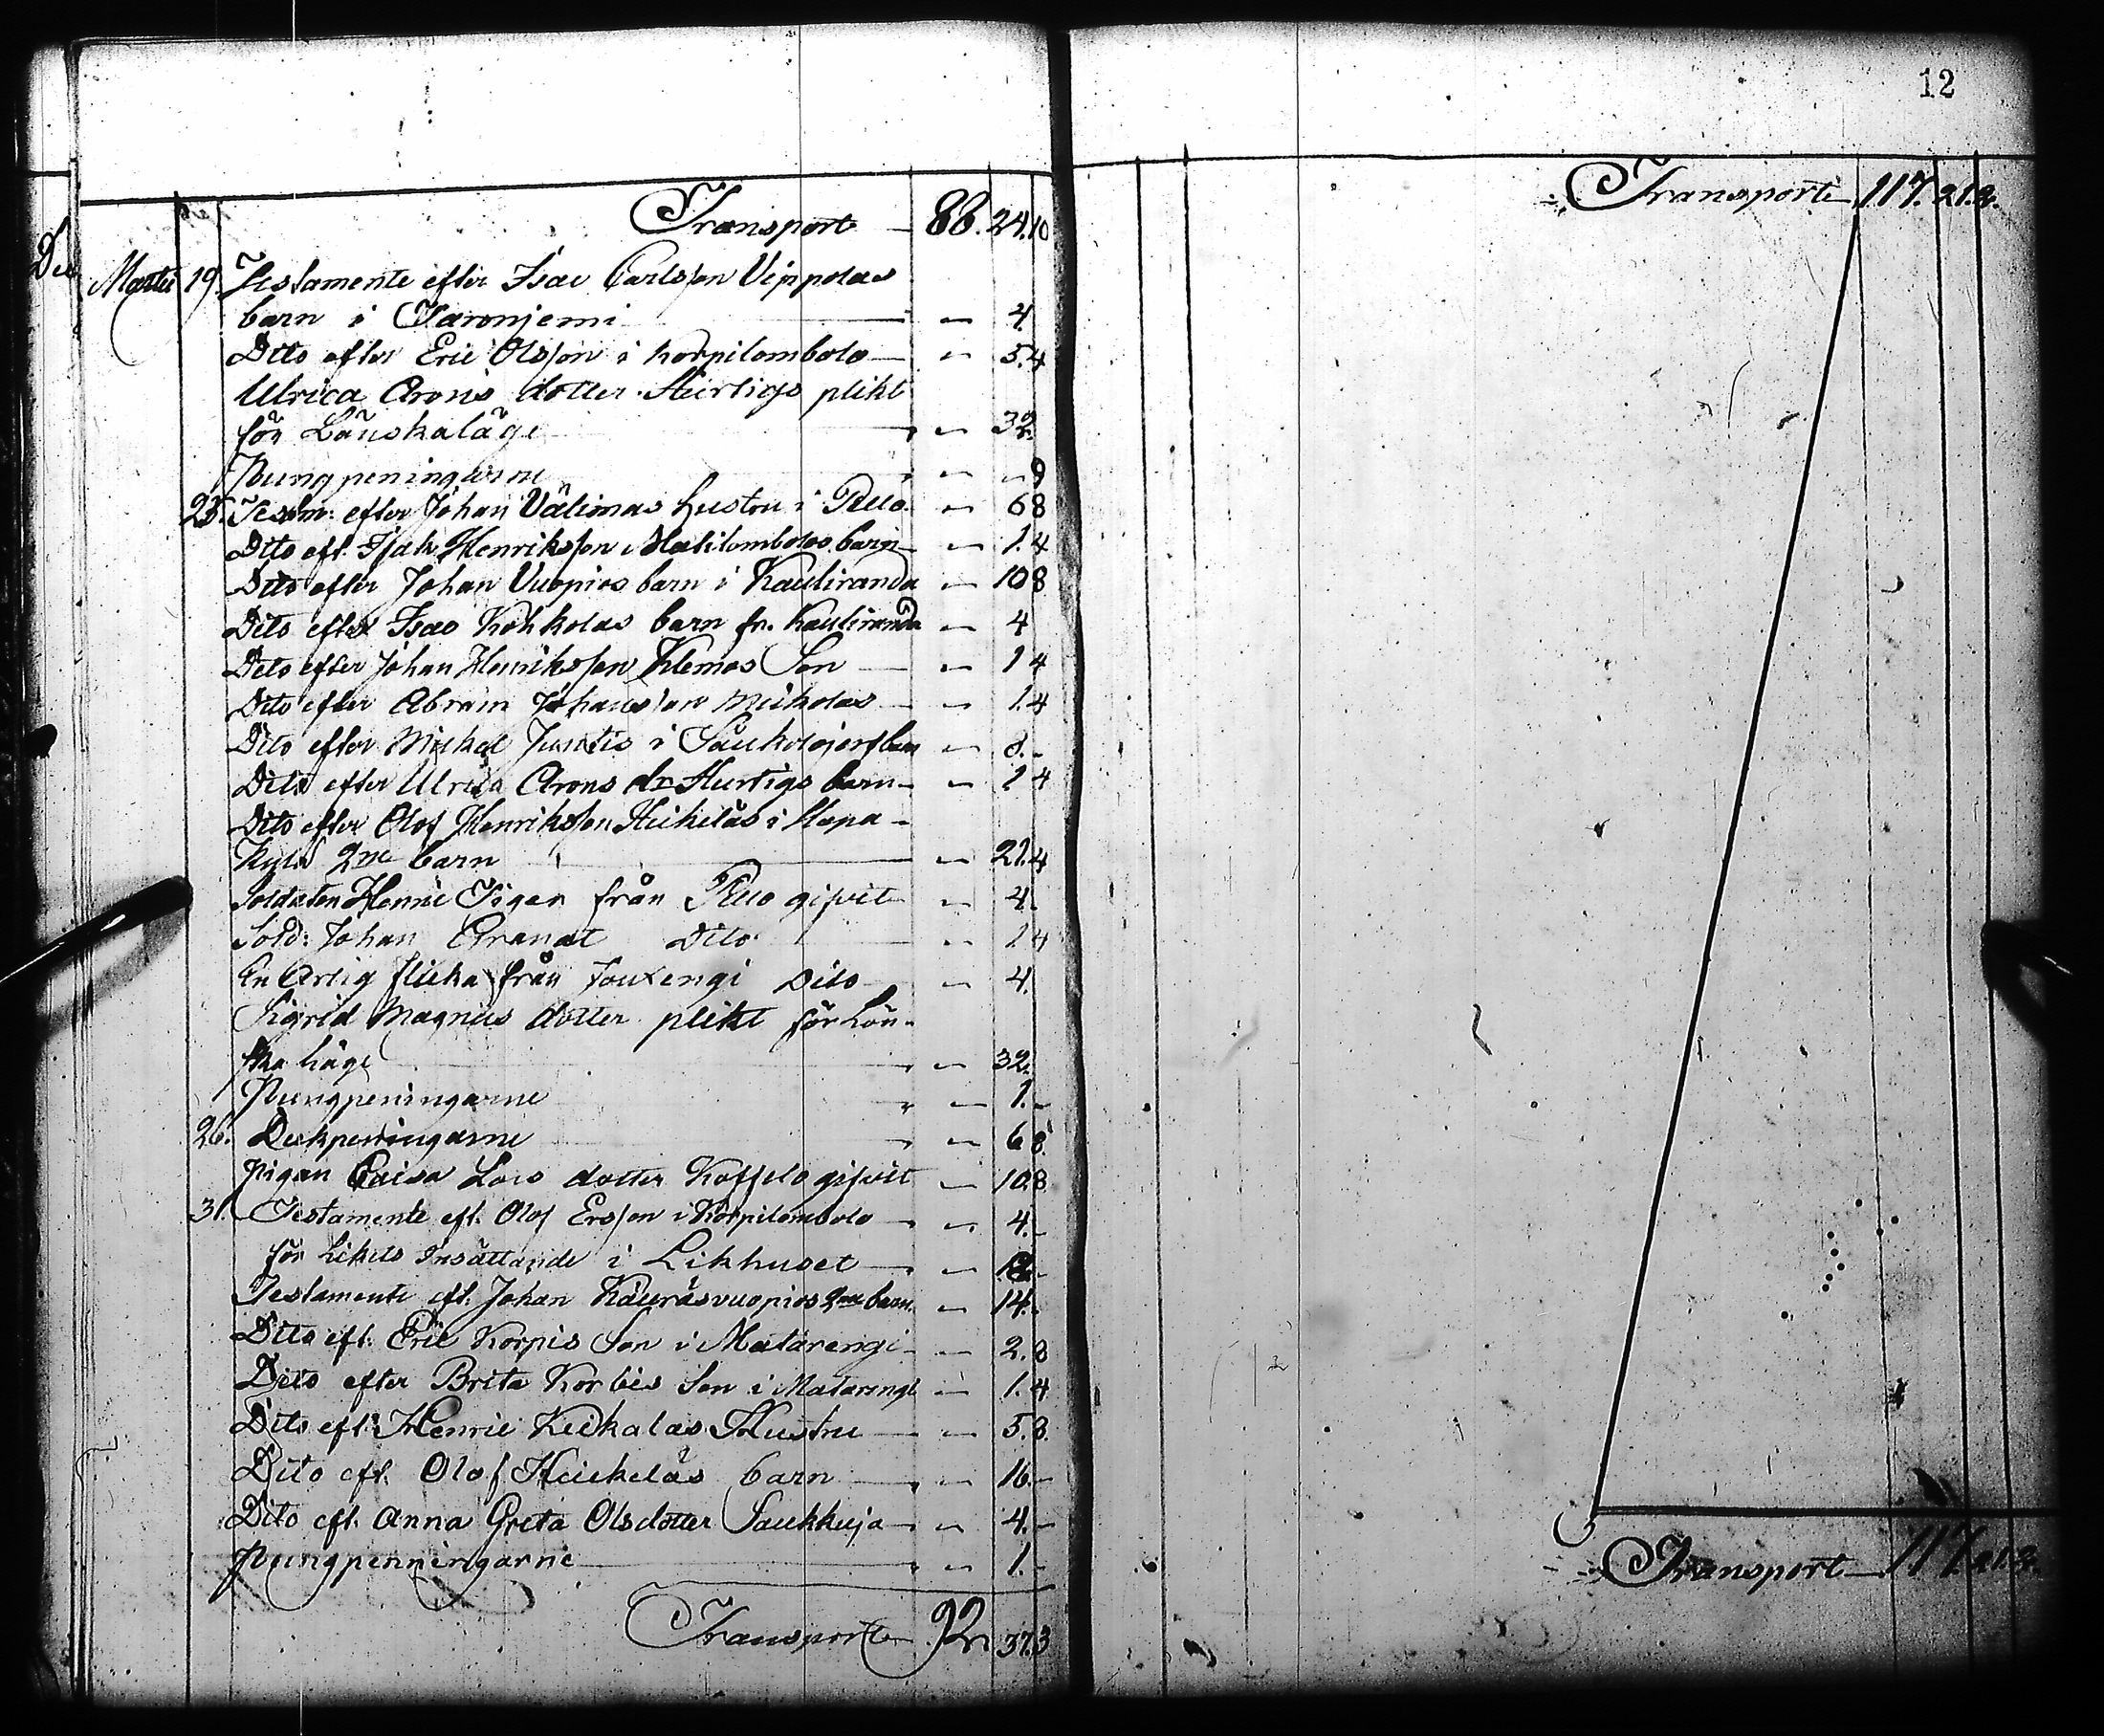 Transport 88. 24. 10
Martii 19. Testamente efter Isac Carlsson Vippolas
barn i Turonjemi — 4.
Dito efter Eric Olsson i Korpilombolo — 5. 4
Ulrica Arons dotter Hurtigs plikt
för Länskaläge — 32.
Pungpeningarne — 9
25. Testm: efter Johan Välimas hustru i Pello — 6 8
Dito eft. Isak Henriksson Matilombolos barn — 1. 4
Dito efter Johan Vuopios barn i Kauliranda — 10 8
Dito efter Isac Kohkolas barn fr. Kauliranda — 4
Dito efter Johan Henriksson Klemos Son — 1 4
Dito efter Abram Johansson Mukolas — 1. 4
Dito efter Mickel Juntis i barn — 8. -
Dito efter Ulrica Arons dr Hurtigs barn — 1 4
Dito efter Olof Henriksson Heikeläs i Kupa-
2ne barn — 21. 4
Soldaten Henric Tiger från Pello gifvit — 4.
Sold: Johan Granat Dito — 1 4
En Ärlig flicka från Jouxengi Dito — 4.
Sigrid Magnus dotter plikt för Lön-
ska läge — 32.
Pungpeningarne — 1. -
26. Deckpeningarne — 6 8
Pigan Caisa Lars dotter gifvit — 10. 8
31. Testamente eft. Olof Ersson i Korpilombolo — 4. -
för Likets Insättande i Likhuset — 12. -
Testamente eft. Johan Käuräsvuopios 2ne barn — 14. -
Dito eft. Eric Korpis Son i Matarengi — 2. 8
Dito efter Brita Korbis Son i Matarengi — 1. 4
Dito eft. Henric Keikalas Hustru — 5. 8.
Dito eft. Olof Heikeläs barn — 16. -
Dito eft. Anna Greta Olsdotter Saukkuja — 4. -
Pungpenningarne — 1. -
Transport 92. 37. 3
12
Transport 117. 21. 2.
Transport 117. 21. 2.